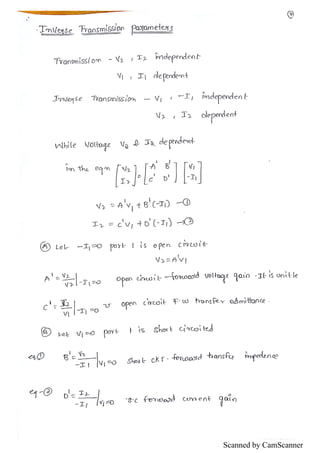 Inverse Transmission parameters
Transmission - V2 , I2 independent
V1 , I1 dependent
Inverse Transmission - V1 , -I1 independent
V2 , I2 dependent
While Voltage V2 & I2 dependent
in the eqn [V2 I2] = [A' B' C' D'] [V1 -I1]
V2 = A'V1 + B'(-I1) -①
I2 = C'V1 + D'(-I1) -②
Ⓐ Let -I1=0 port 1 is open circuit
V2=A'V1
A' = V2/V1 | -I1=0 open circuit - forward voltage gain. It is unitle
C' = I2/V1 | -I1=0 open circuit F.W transfer admittance.
Ⓑ Let V1=0 port 1 is short circuited
eq① B' = V2/-I1 | V1=0 short ckt. forward transfer impedence
eq-② D' = I2/-I1 | V1=0 S.C forward current gain
Scanned by CamScanner